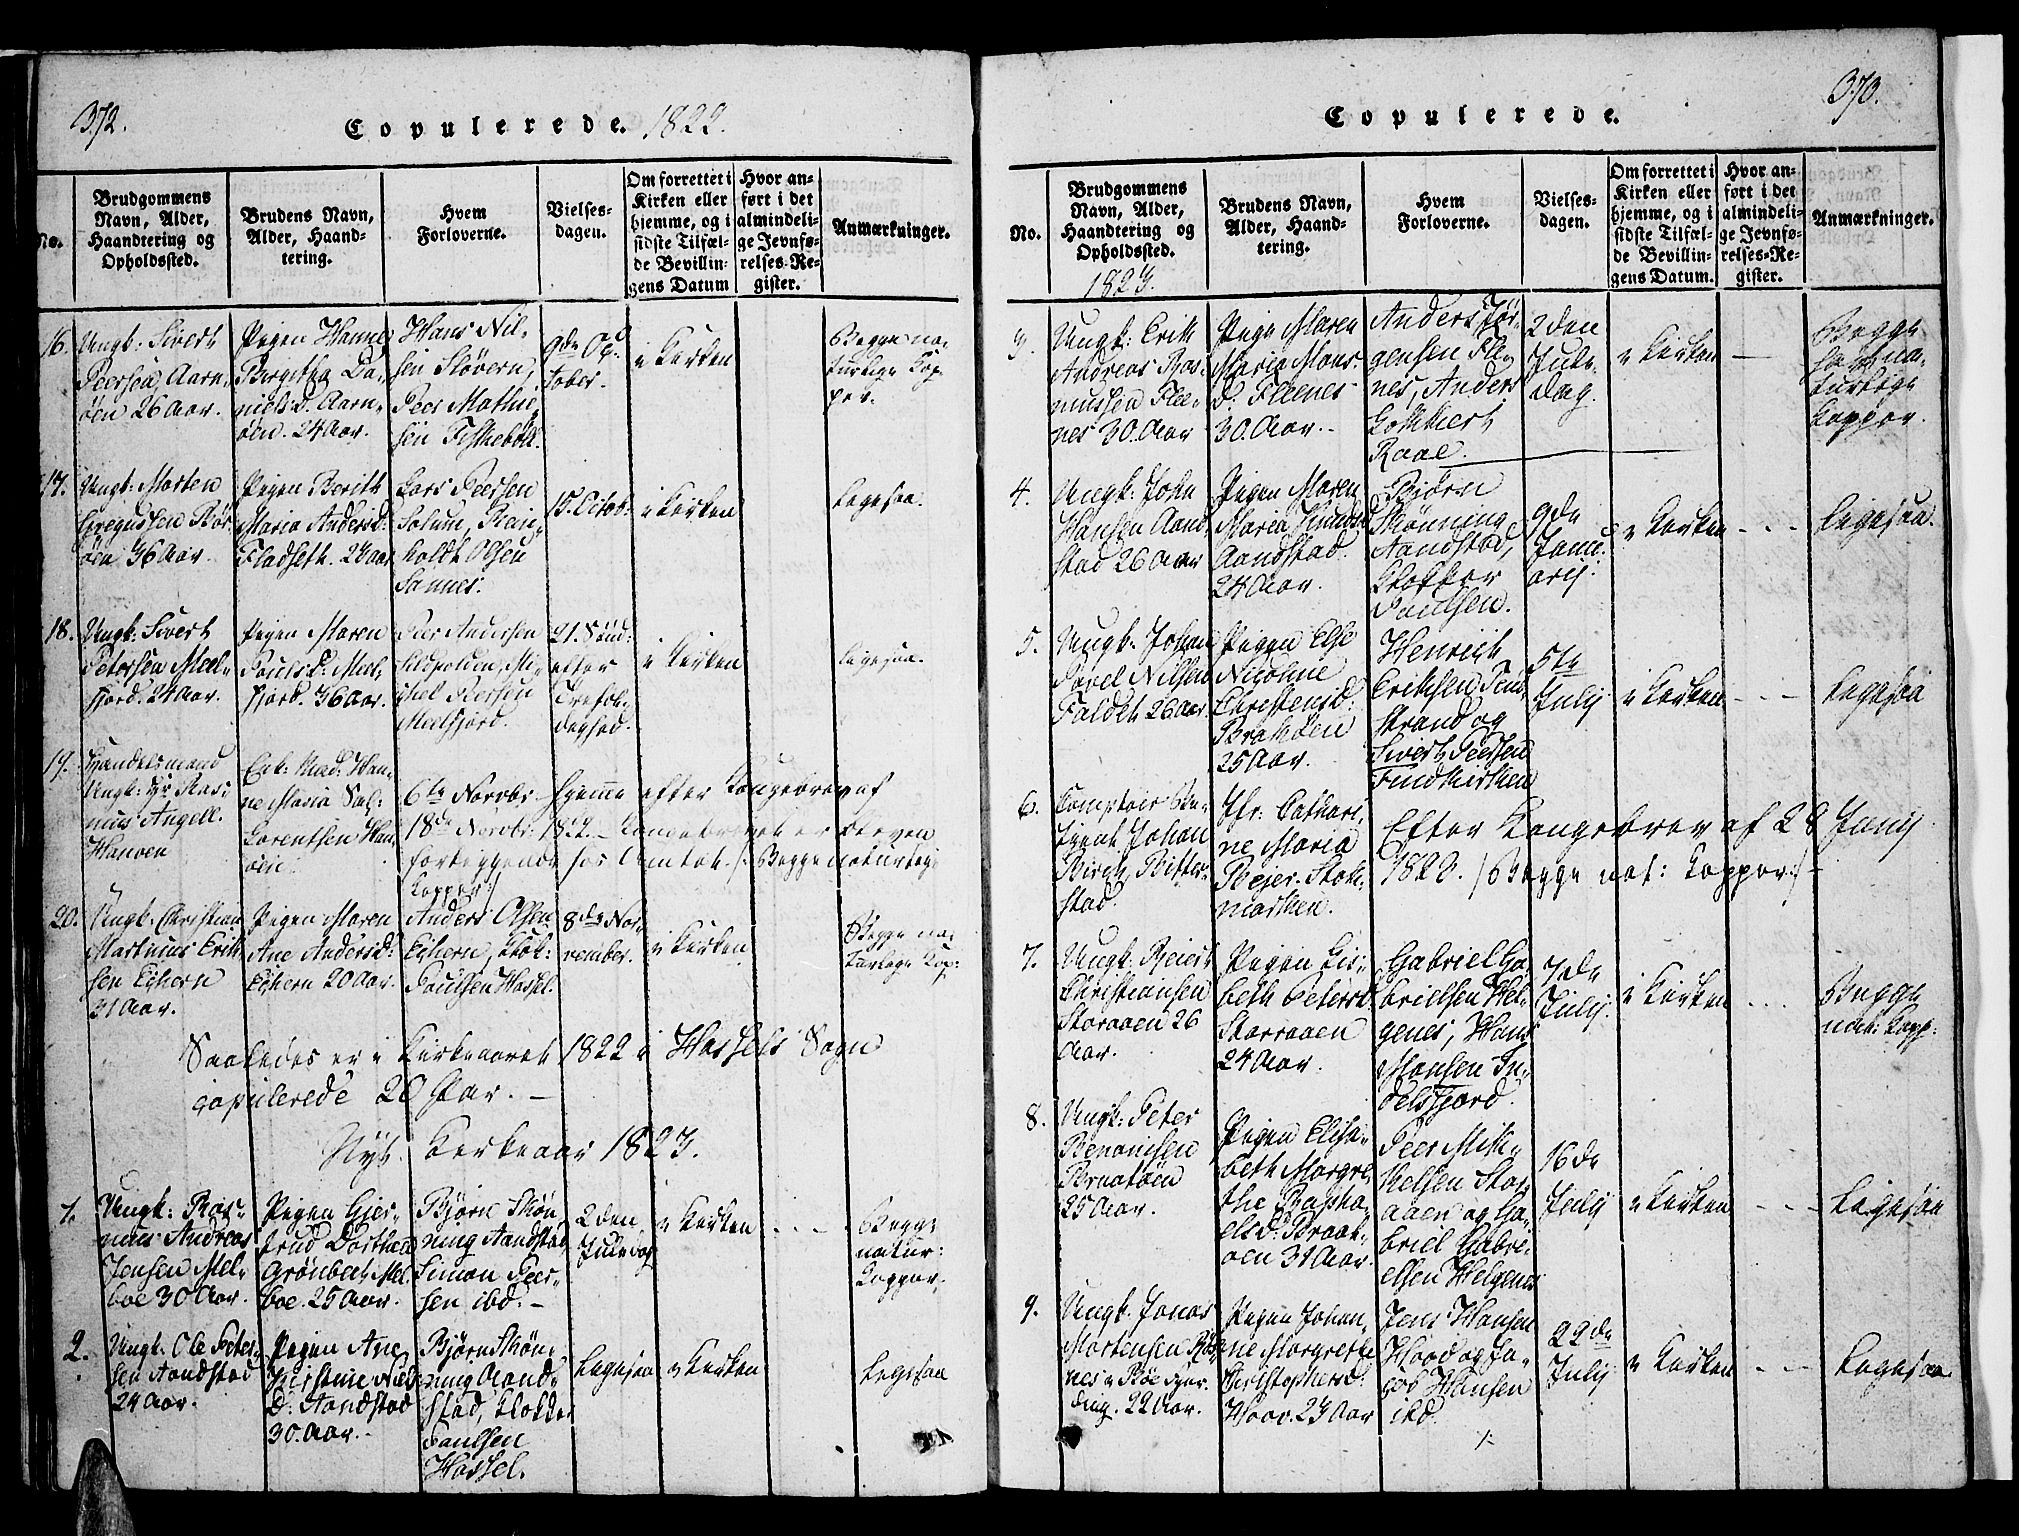 372.
Copulerede. 1822.
No.
Brudgommens
Navn, Alder,
Haandtering og
Opholdssted.
Brudens Navn,
Alder, Haand-
tering.
Hvem
Forloverne.
Vielses-
dagen.
Om forrettet i
Kirken eller
hjemme, og i
sidste Tilfæl-
de Bevillin-
gens Datum
Hvor an-
ført i det
almindeli-
ge Jevnfø-
relses-Re-
gister.
Anmærkninger.
16.
Ungk: Sivert
Peersen, Aarn-
øen 26 Aar.
Pigen Hanne
Birgitha Da-
niels D. Aarn-
øen. 24 Aar.
Hans Nil-
sen Støvern,
Peer Mathie-
sen Fiskebøll.
9de Oc-
tober.
i Kirken
Begge na-
turlige Kop-
per.
17.
Ungk: Morten
Gregussen Bør-
øen 36 Aar.
Pigen Berith
Maria Andersd:
Fladseth. 24 Aar
Lars Peersen
Solum, Rein-
holdt Olsen
Sannes.
15. Octob.
i Kirken
Ligesaa.
18.
Ungk: Sivert
Petersen Meel-
fjord. 24 Aar.
Pigen Maren
Pouls D: Meel-
fjord. 36 Aar.
Peer Andersen
Kildpolden, Mi-
chel Peersen
Meelfjord.
21. Sønd:
efter
Trefol-
dighed.
i Kirken
Ligesaa.
19.
Handelsmand
Ungk: Hr Ras-
mus Angell.
Hanøen
Enk: Mad: Han-
ne Maria Sal:
Lorentsen Han-
øen.
6te Novbr. hjemme efter Kongebrev af
18de Novbr: 1822. - Kongebrevet er bleven
forbiggende hos Amtet. /: Begge naturlige
Kopper:/
20.
Ungk: Christian
Martinus Erik-
sen Eshern
31 Aar.
Pigen Maren
Ane Andersd:
Eshern 20 Aar.
Anders Olsen
Eshern, Klok:
Poulsen Hassel.
8de No-
vember.
i Kirken
Begge na-
turlige Kop:
Saaledes er i Kirkeaaret 1822 i Hassels Sogn
copulerede 20 Par. -
Nyt Kirkeaar 1823.
1.
Ungk: Ras-
mus Andreas
Jensen Mel-
boe 30 Aar.
Pigen Gjer-
trud Dorthea
Grønbech Mel-
boe. 25 Aar.
Bjørn Skøn-
ning Aandstad
Simon Peer-
sen ibd. -
2den
Juledag
i Kirken
Begge
natur:
Kopper.
2.
Ungk: Ole Peter-
sen Aandstad
24 Aar.
Pigen Ane
Kirstine Niels
D: Aandstad
30. Aar.
Bjørn Skøn-
ning Aand-
stad, Klokker
Paulsen
Hassel.
Ligesaa
i Kirken
Ligesaa
373.
Copulerede.
No.
Brudgommens
Navn, Alder,
Haandtering og
Opholdssted.
1823.
Brudens Navn,
Alder, Haand-
tering.
Hvem
Forloverne.
Vielses-
dagen.
Om forrettet i
Kirken eller
hjemme, og i
sidste Tilfæl-
de Bevillin-
gens Datum.
Hvor an-
ført i det
almindeli-
ge Jevnfø-
relses-Re-
gister.
Anmærkninger.
3.
Ungk: Erik
Andreas Ras-
mussen Flee-
nes 30. Aar
Pigen Maren
Maria Mons-
D: Fleenes
30. Aar. -
Anders Jør-
gensen Fle-
nes, Anders
Raae.
2den
Jule-
dag.
i Kirken
Begge
na-
turlige
Kopper.
4.
Ungk: John
Hansen Aand-
stad 26 Aar
Pigen Maren
Maria Knudsd:
Aandstad.
24 Aar.
Biørn
Skønning
Aandstad,
Klokker
Paulsen.
9de
Janu-
arij.
i Kirken
Ligesaa.
5.
Ungk: Johan
Pavel Nilsen
Faldet 26 Aar.
Pigen Else
Nicoline
Christensd:
25 Aar.
Henrich
Eriksen
strand og
Sivert Peersen
5te
Julij
i Kirken
Ligesaa
6.
Comptoir Be-
tjent Johan
Birch, Bitter-
stad.
Jfr: Cathari-
ne Maria
Bejer. Stok-
marken.
Efter Kongebrev af 28 Junij
1823. /: Begge nat: Kopper:/ -
7.
Ungk: Reiert
Christiansen
Storaaen 26
Aar.
Pigen Lis-
beth Petersd:
Storaaen
24 Aar.
Gabriel Ga-
brielsen Hel-
genes, Hans
Monsen In-
delsfjord.
7de
Julij.
i Kirken
Begge
nat: Kopp:
8.
Ungk: Peter
Benonisen
Braatøen
25 Aar.
Pigen Elisa-
beth Margre-
the Rapha-
elsd: Braat-
øen 31 Aar.
Peer Mik-
kelsen Stor-
aaen og Ga-
briel Gabri-
elsen Helgenes
16de
Julij
i Kirken
Ligesaa
9.
Ungk. Jonas
Mortensen
nes i Bøe Fjer-
ding. 22 Aar.
Pigen Johan-
ne Margrethe
Christophersd:
Hoov. 23 Aar
Jens Hansen
Hood og Ja-
cob Hansen
ibd.
22de
Julij
i Kirken
Ligesaa.